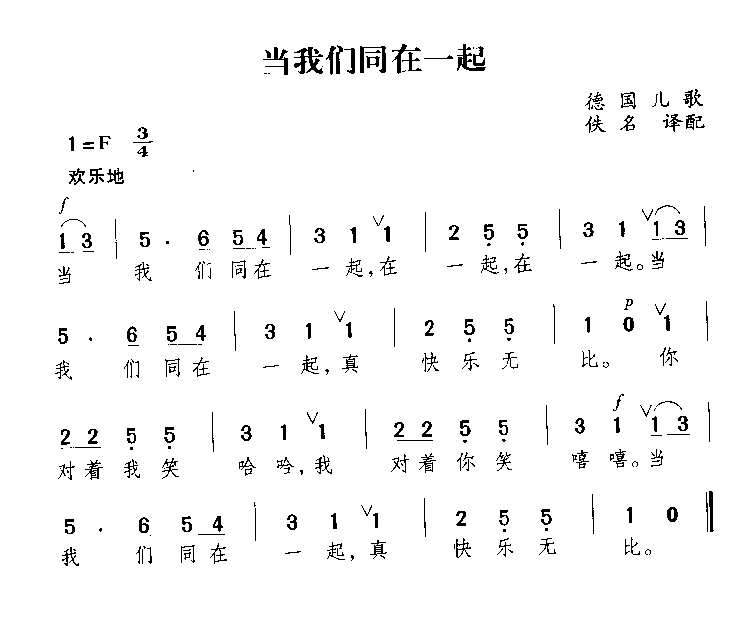 当我们同在一起
德国儿歌
佚名 译配
1=F 3/4
欢乐地
f
1 3 | 5 · 6 5 4 | 3 1 ∨ 1 | 2 5 5 | 3 1 ∨ 1 3 |
当 我 们同在 一起,在 一起,在 一起。当
p
5 · 6 5 4 | 3 1 ∨ 1 | 2 5 5 | 1 0 ∨ 1 |
我 们同在 一起,真 快乐无 比。 你
f
2 2 5 5 | 3 1 ∨ 1 | 2 2 5 5 | 3 1 ∨ 1 3 |
对着我笑 哈吟,我 对着你笑 嘻嘻。当
5 · 6 5 4 | 3 1 ∨ 1 | 2 5 5 | 1 0 ‖
我 们同在 一起,真 快乐无 比。